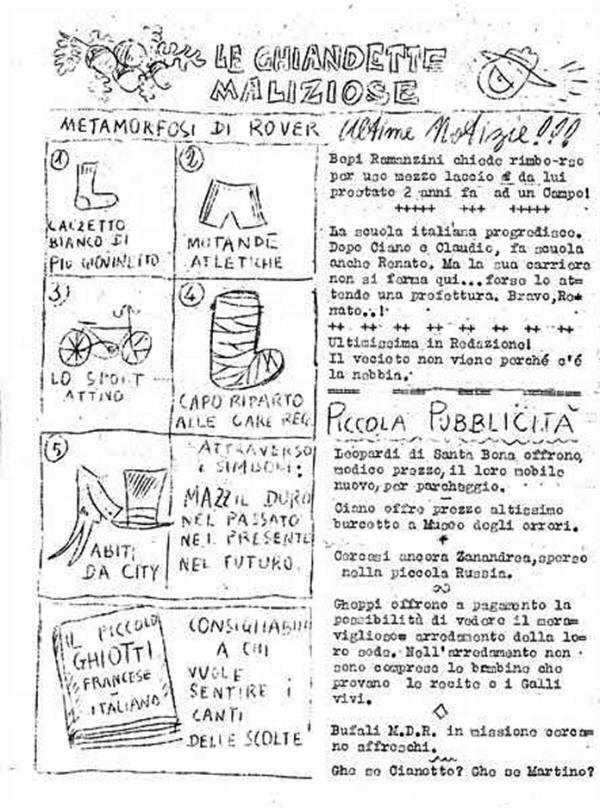 LE GHIANDETTE
MALIZIOSE
METAMORFOSI DI ROVER
1
CALZETTO
BIANCO DI
PIU GIOVINLITO
2
MUTANDE
ATLETICHE
3)
LO SPORT
ATTIVO
4
CAPO RIPARTO
ALLE GARE REG.
5
ABITI
DA CITY
ATTRAVERSO
I SIMBOLI:
MAZZIL DURO
NEL PASSATO
NEL PRESENTE
NEL FUTURO.
IL PICCOLO
GHIOTTI
FRANCESE
-
ITALIANO
CONSIGLIABILI
A CHI
VUOLE
SENTIRE I
CANTI
DELLE SCOLTE
Ultime Notizie!!!
Bepi Ramanzini chiede rimbo-rso
per uno mezzo laccio da lui
prestato 2 anni fa ad un Campo!
+++++ +++ +++++
La scuola italiana progredisce.
Dopo Ciano e Claudio, fa scuola
anche Renato. Ma la sua carriera
non si ferma qui...forse lo at=
tende una prefettura. Bravo,Re=
nato..!
++ ++ ++ ++ ++ ++ ++
Ultimissima in Redazione!
Il vecioto non viene perché c'é
la nebbia.
PICCOLA PUBBLICITÀ
Leopardi di Santa Bona offrono,
modico prezzo, il loro mobile
nuovo, per parcheggio.
Ciano offre prezzo altissimo
burcetto a Museo degli orrori.
Cercasi ancora Zanandrea,sperso
nella piccola Russia.
Gheppi offrono a pagamento la
possibilità di vedere il mera=
viglioso= arredamento della lo=
ro sede. Nell'arredamento non
sono comprese le bambine che
provano le recite e i Galli
vivi.
Bufali M.D.R. in missione cerca=
no affreschi.
Ghe se Cianetto? Ghe se Martino?